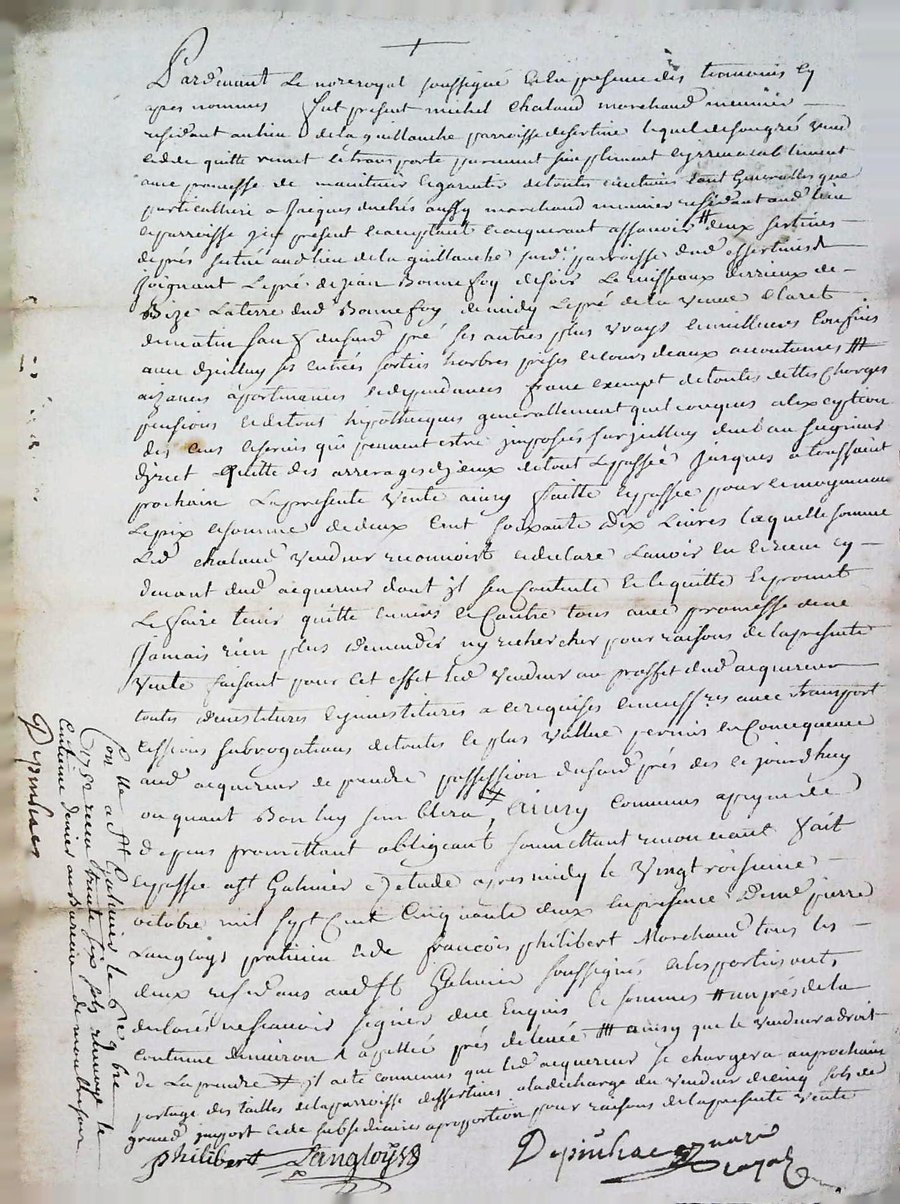 Pardevant Le no.re royal soussigné et en presence des temoins cy
apres nommés fut présent michel chaland marchand meunier
residant au lieu de la guillanche parroisse desertine lequel de son gré vend
cede quitte remet et transporte purement simplement et irrevocablement
avec promesse de maintenir et garentir de toutes evictions tant generalles que
particulliere a Jacques duchés aussy marchand meunier residant aud lieu
et parroisse icy présent et acceptant et acquerant assavoir #
de pré situé aud lieu de la guillanche surd. parroisse dud essertines
Joignant Le pré de jean Bonnefoy de soir Le ruisseaux de
Bize La terre dud Bonnefoy de midy Le pré de la veuve Claret
de matin sauf dusurd pré ses autres plus vrays et meilleures Confins
avec d'icelluy ses entrées sorties harbres prises et cours deaux accoutumés #
aizances apartenances et dependances franc exempt de toutes dettes charges
pensions et hypotheques generallement quelconques a l'exception
des cens et servis qui peuvent estre imposés sur icelluy au seigneur
direct quitte des arrerages d'iceux de tout le passée jusques a toussaint
prochain La presente vente ainsy faitte et passée pour et moyennant
Le prix et somme de deux Cent soixante dix Livres laquelle somme
Led chaland vendeur reconnoist et declare Lavoir eu et receu cy
devant dud acquereur dont il sen Contente et le quitte et promet
Le faire tenir quitte envers et Contre tous avec promesse de ne
jamais rien plus demander ny rechercher pour raisons de la presente
vente faisant pour cet effet led vendeur au proffit dud acquereur
toutes devestitures et investitures a ce requises et necess.res avec transport
cessions subrogations de toutes et plus vallue permis en Concequence
aud acquereur de prendre possession dusurd prés des ce jourdhuy
ou quant Bon luy semblera, # ainsy Convenus a peyne de
depens promettant obligeant soumettant renonceant fait
et passée a St Galmier etude apres midy le vingt troisieme
octobre mil sept Cent Cinquante deux en presence de me pierre
Langloys praticien et de françois philibert Marchand tous les
deux residans aud St Galmier soussignés et les parties ont
declarés ne scavoir signer de ce Enquis et sommés # un prés de la
contenue denviron appellé prés de # ainsy que le vendeur a droit
de La prendre # il a été convenus que led acquereur se chargera au prochain
partage des tailles de la parroisse dessertines a la decharge du vendeur de cinq sols de
grand import et de subsidiaires a proportion pour raisons de la presente vente
philibert Langloys
Depinhac no.re royal
Con.lle a St Galmier le 6.re 9.bre
1752 receu trente six sols renvoyé le
Centieme denier au Bureau de montbrison
Depinhac